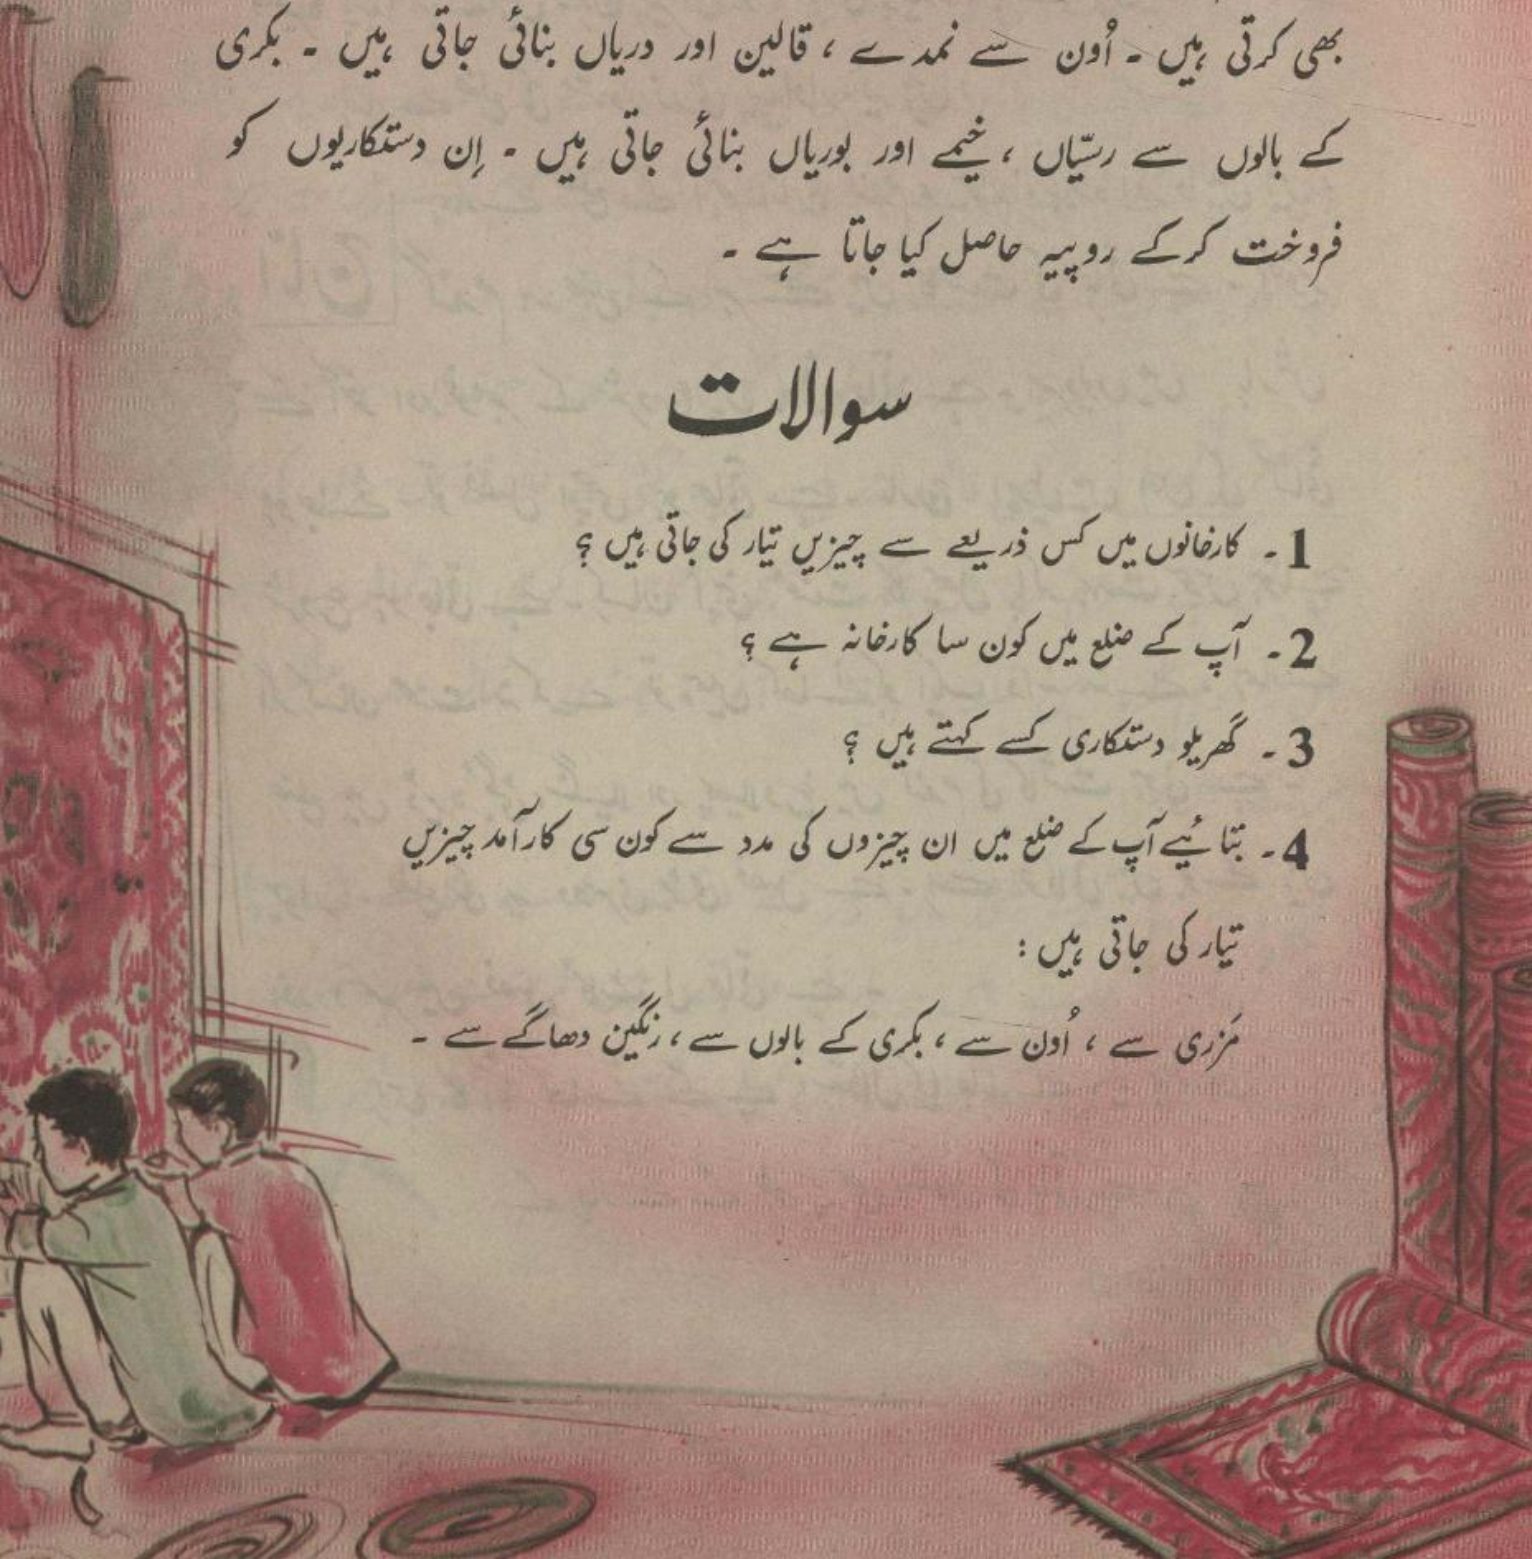 بھی کرتی ہیں ۔ اُون سے نمدے ، قالین اور دریاں بنائی جاتی ہیں ۔ بکری
کے بالوں سے رسّیاں ، خیمے اور بوریاں بنائی جاتی ہیں ۔ اِن دستکاریوں کو
فروخت کرکے روپیہ حاصل کیا جاتا ہے ۔
سوالات
1 ۔ کارخانوں میں کس ذریعے سے چیزیں تیار کی جاتی ہیں ؟
2 ۔ آپ کے ضلع میں کون سا کارخانہ ہے ؟
3 ۔ گھریلو دستکاری کسے کہتے ہیں ؟
4 ۔ بتائیے آپ کے ضلع میں ان چیزوں کی مدد سے کون سی کارآمد چیزیں
تیار کی جاتی ہیں :
مَزری سے ، اُون سے ، بکری کے بالوں سے ، رنگین دھاگے سے ۔